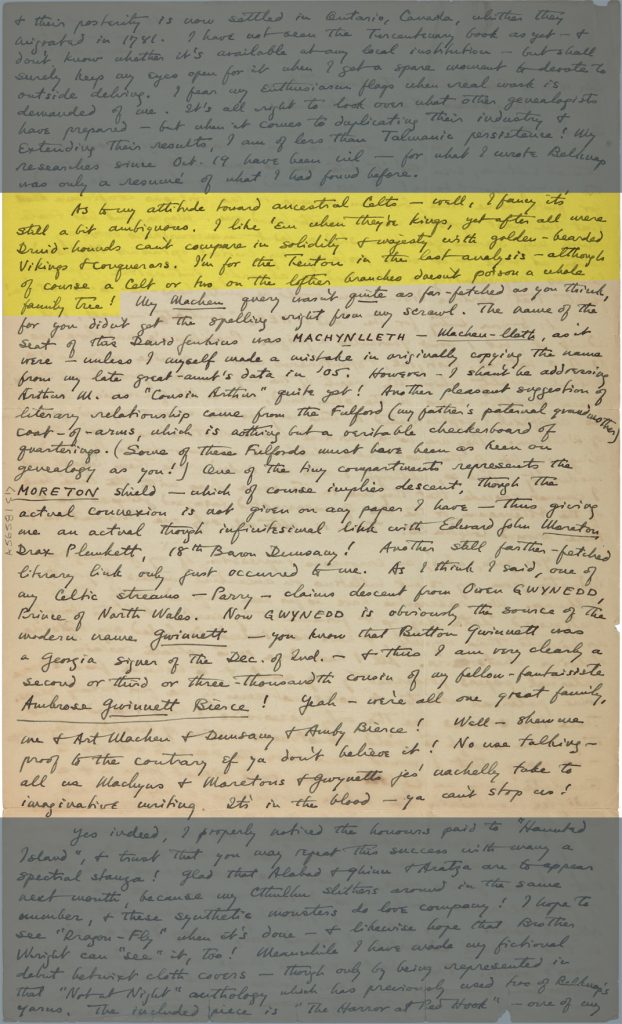 & their posterity is now settled in Ontario, Canada, whither they
migrated in 1781. I have not seen the Tercentenary book as yet — &
don't know whether it's available at any local institution — but shall
surely keep my eyes open for it when I get a spare moment to devote to
outside delving. I fear my Enthusiasm flags when real work is
demanded of me. It's all right to look over what other genealogists
have prepared — but when it comes to duplicating their industry &
Extending their results, I am of less than Talmanic persistence! My
researches since Oct. 19 have been nil — for what I wrote Belknap
was only a resumé of what I had found before.
As to my attitude toward ancestral Celts — well, I fancy it's
still a bit ambiguous. I like 'Em when they're kings, yet after all mere
Druid-hounds can't compare in solidity & majesty with golden-bearded
Vikings & conquerors. I'm for the Teuton in the last analysis — although
of course a Celt or two on the loftier branches doesn't poison a whole
family tree! My Machen query wasn't quite as far-fetched as you think,
for you didn't get the spelling right from my scrawl. The name of the
seat of this David Jenkins was MACHYNLLETH — Machen-lleth, as it
were — unless I myself made a mistake in originally copying the name
from my late great-aunt's data in '05. However — I shan't be addressing
Arthur M. as "Cousin Arthur" quite yet! Another pleasant suggestion of
literary relationship came from the Fulford (my father's paternal grandmother)
coat-of-arms, which is nothing but a veritable checkerboard of
quarterings. (Some of these Fulfords must have been as keen on
genealogy as you!) One of the tiny compartments represents the
MORETON shield — which of course implies descent, though the
actual connexion is not given on any paper I have — thus giving
me an actual though infinitesimal link with Edward John Moreton
Drax Plunkett, 18th Baron Dunsany! Another still farther-fetched
literary link only just occurred to me. As I think I said, one of
my Celtic streams — Perry — claims descent from Owen GWYNEDD,
Prince of North Wales. Now GWYNEDD is obviously the source of the
modern name Gwinnett — you know that Button Gwinnett was
a Georgia signer of the Dec. of Ind. — & thus I am very clearly a
second or third or three-thousandth cousin of my fellow-fantaisiste
Ambrose Gwinnett Bierce! Yeah — we're all one great family,
me & Art Machen & Dunsany & Amby Bierce! Well — shew me
proof to the contrary ef ya don't believe it! No use talking —
all us Machyns & Moretons & Gwynetts jes' nachelly take to
imaginative writing. It's in the blood — ya can't stop us!
Yes indeed, I properly noticed the honours paid to "Haunted
Island", & trust that you may repeat this success with many a
spectral stanza! Glad that Alabad & Ghinu & Aratza are to appear
next month, because my Cthulhu slithers around in the same
number, & these synthetic monsters do love company! I hope to
see "Dragon-Fly" when it's done — & likewise hope that Brother
Wright can "see" it, too! Meanwhile I have made my fictional
debut betwixt cloth covers — though only by being represented in
that "Not at Night" anthology which has previously used two of Belknap's
yarns. The included piece is "The Horror at Red Hook" — one of my